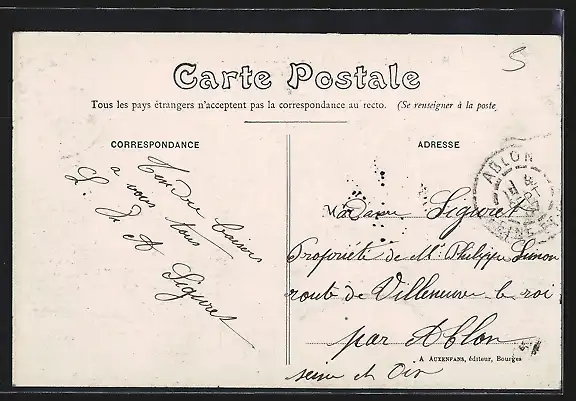 5
Carte Postale
Tous les pays étrangers n'acceptent pas la correspondance au recto. (Se renseigner à la poste
CORRESPONDANCE
Tendre baisers
a vous tous
L. A Séguret
ADRESSE
ABLON
SEINE-ET
Madame Séguret
Propriété de Mr Philippe Simon
route de Villeneuve le roi
par Ablon
A AUXENFANS, éditeur, Bourges
seine et Oise